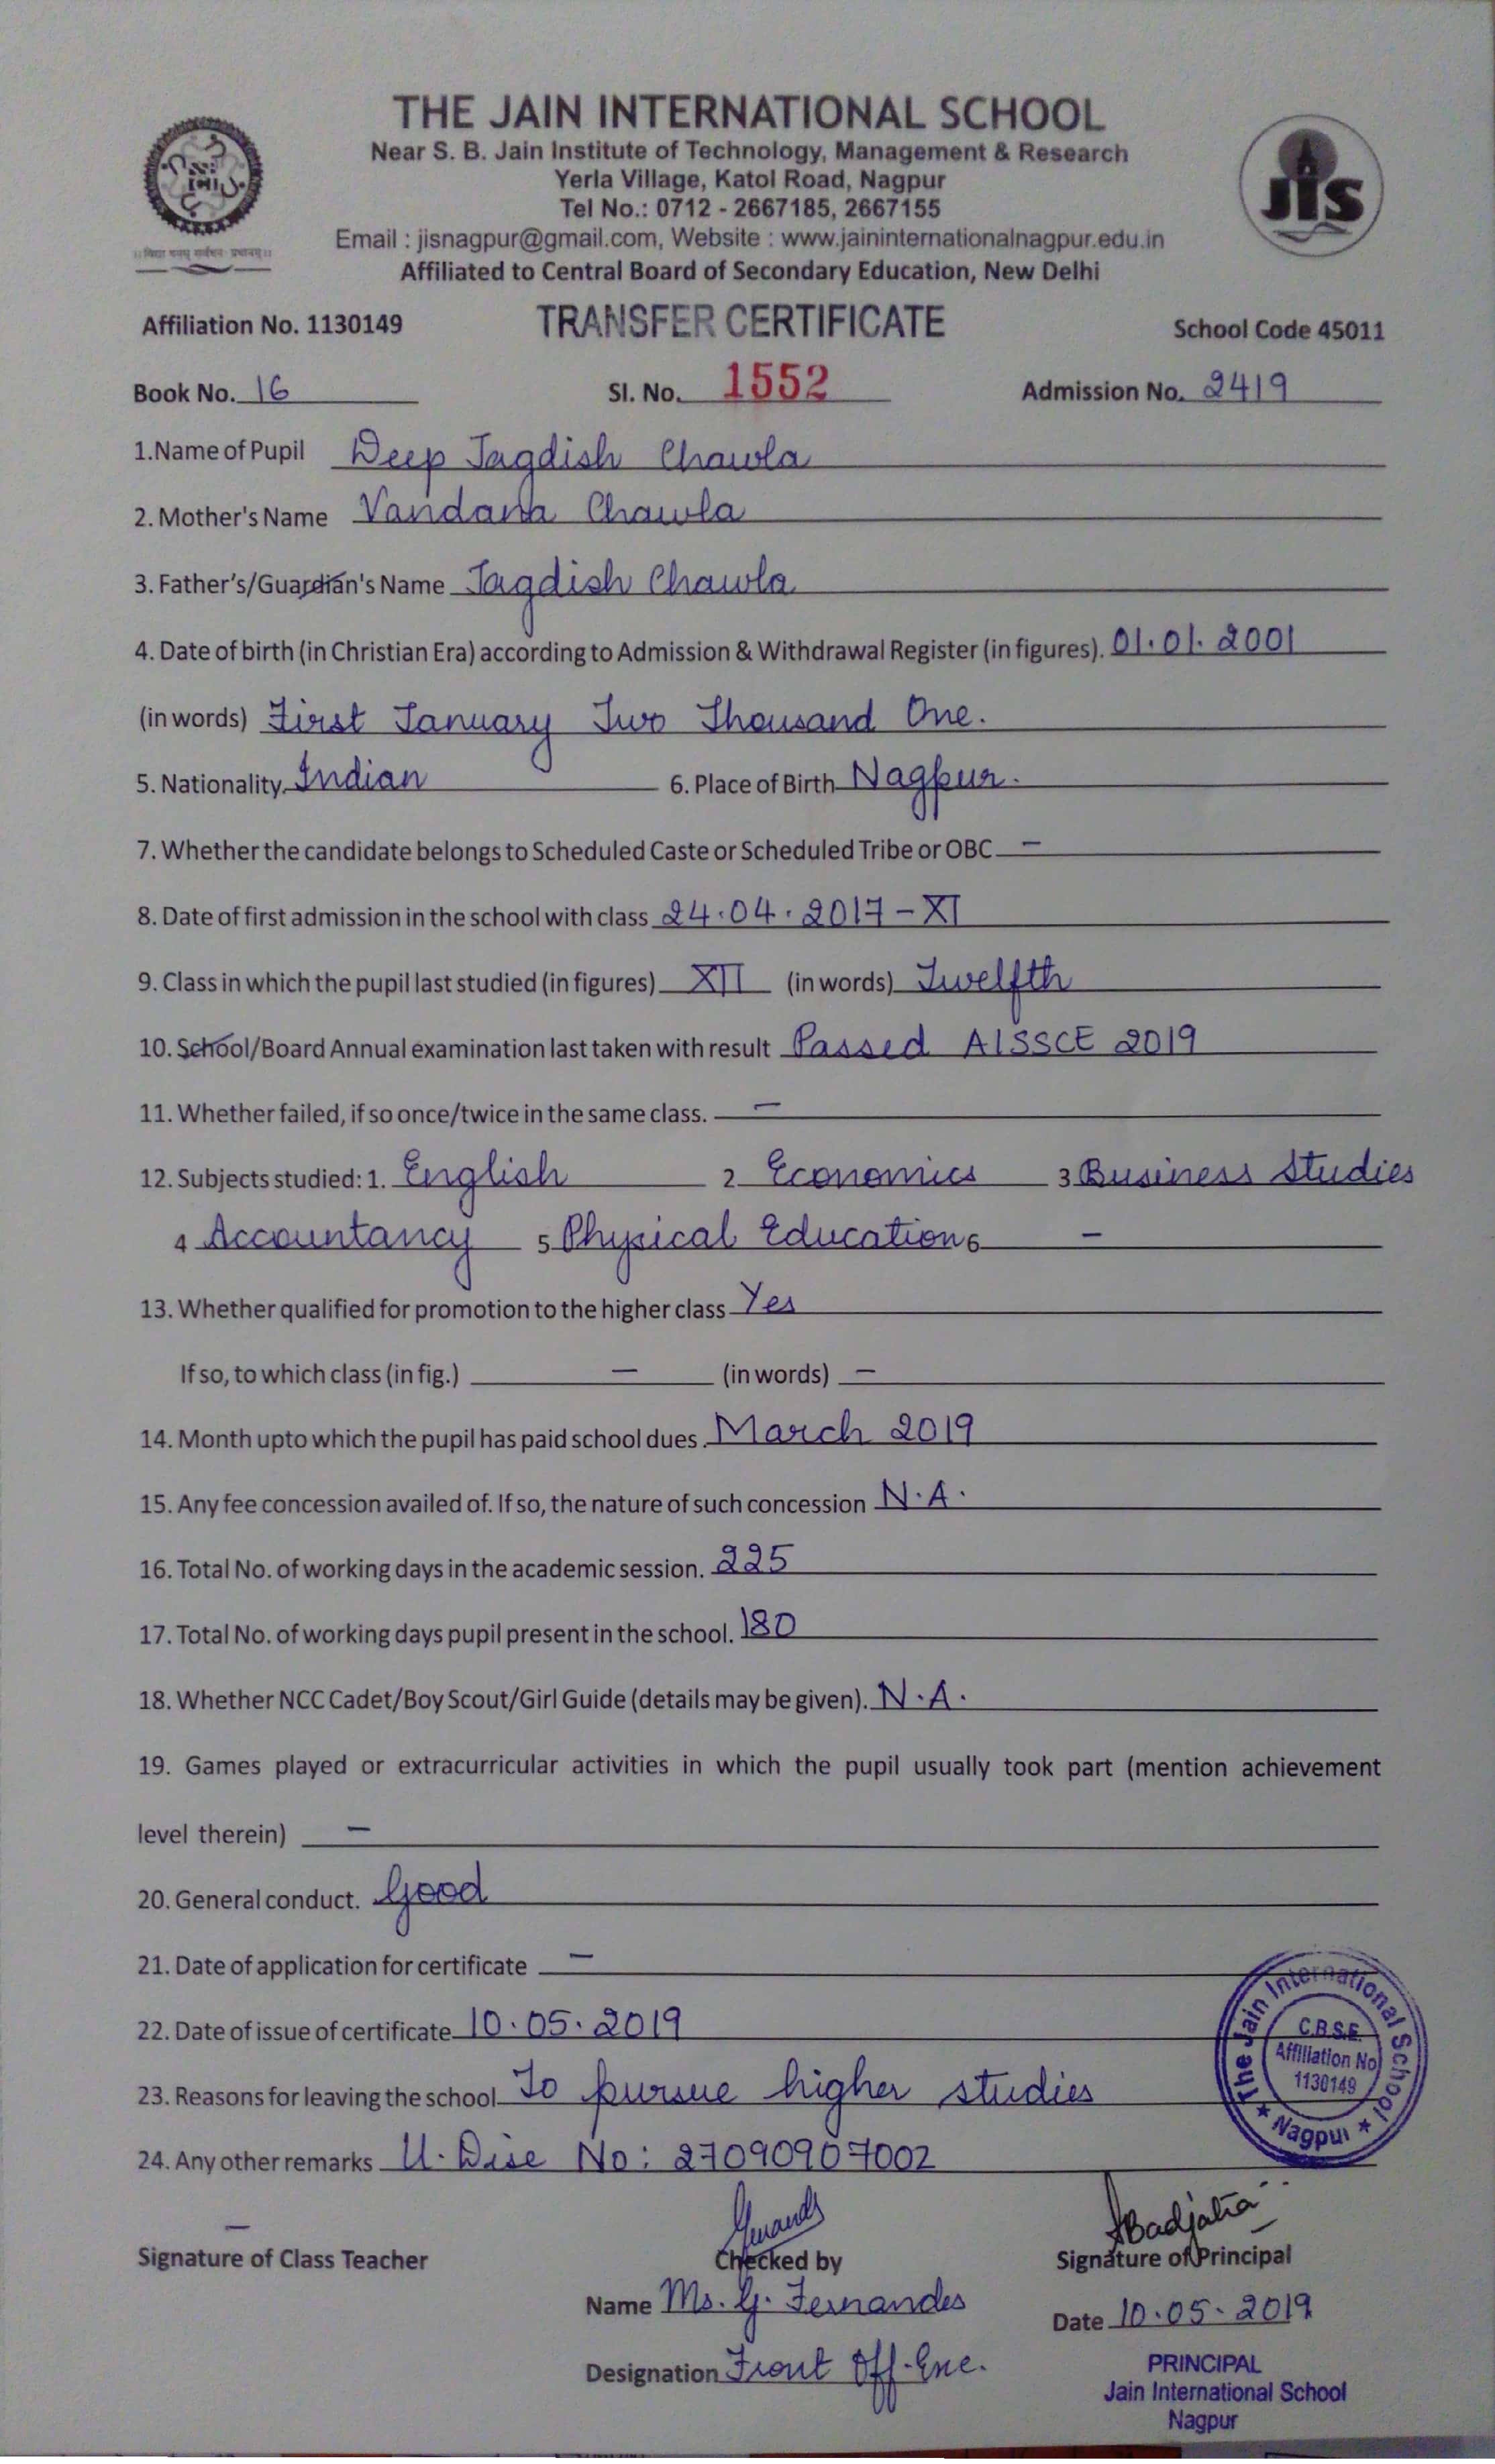 THE JAIN INTERNATIONAL SCHOOL
Near S. B. Jain Institute of Technology, Management & Research
Yerla Village, Katol Road, Nagpur
Tel No.: 0712 - 2667185, 2667155
Email : jisnagpur@gmail.com, Website : www.jaininternationalnagpur.edu.in
Affiliated to Central Board of Secondary Education, New Delhi
JIS
Affiliation No. 1130149 TRANSFER CERTIFICATE School Code 45011
Book No. 16 Sl. No. 1552 Admission No. 2419
1.Name of Pupil Deep Jagdish Chawla
2. Mother's Name Vandana Chawla
3. Father's/Guardian's Name Jagdish Chawla
4. Date of birth (in Christian Era) according to Admission & Withdrawal Register (in figures). 01.01.2001
(in words) First January Two Thousand One.
5. Nationality Indian 6. Place of Birth Nagpur.
7. Whether the candidate belongs to Scheduled Caste or Scheduled Tribe or OBC –
8. Date of first admission in the school with class 24.04.2017 – XI
9. Class in which the pupil last studied (in figures) XII (in words) Twelfth
10. School/Board Annual examination last taken with result Passed AISSCE 2019
11. Whether failed, if so once/twice in the same class. –
12. Subjects studied: 1. English 2 Economics 3 Business Studies
4 Accountancy 5 Physical Education 6 –
13. Whether qualified for promotion to the higher class Yes
If so, to which class (in fig.) – (in words) –
14. Month upto which the pupil has paid school dues. March 2019
15. Any fee concession availed of. If so, the nature of such concession N.A.
16. Total No. of working days in the academic session. 225
17. Total No. of working days pupil present in the school. 180
18. Whether NCC Cadet/Boy Scout/Girl Guide (details may be given). N.A.
19. Games played or extracurricular activities in which the pupil usually took part (mention achievement
level therein) –
20. General conduct. Good
21. Date of application for certificate –
22. Date of issue of certificate 10.05.2019
23. Reasons for leaving the school To pursue higher studies
24. Any other remarks U. Dise No: 27090907002
The Jain International School
C.B.S.E.
Affiliation No
1130149
★ Nagpur ★
–
Badjatia
Signature of Class Teacher Checked by Signature of Principal
Name Ms. G. Fernandes Date 10.05.2019
Designation Front Off. Exe.
PRINCIPAL
Jain International School
Nagpur